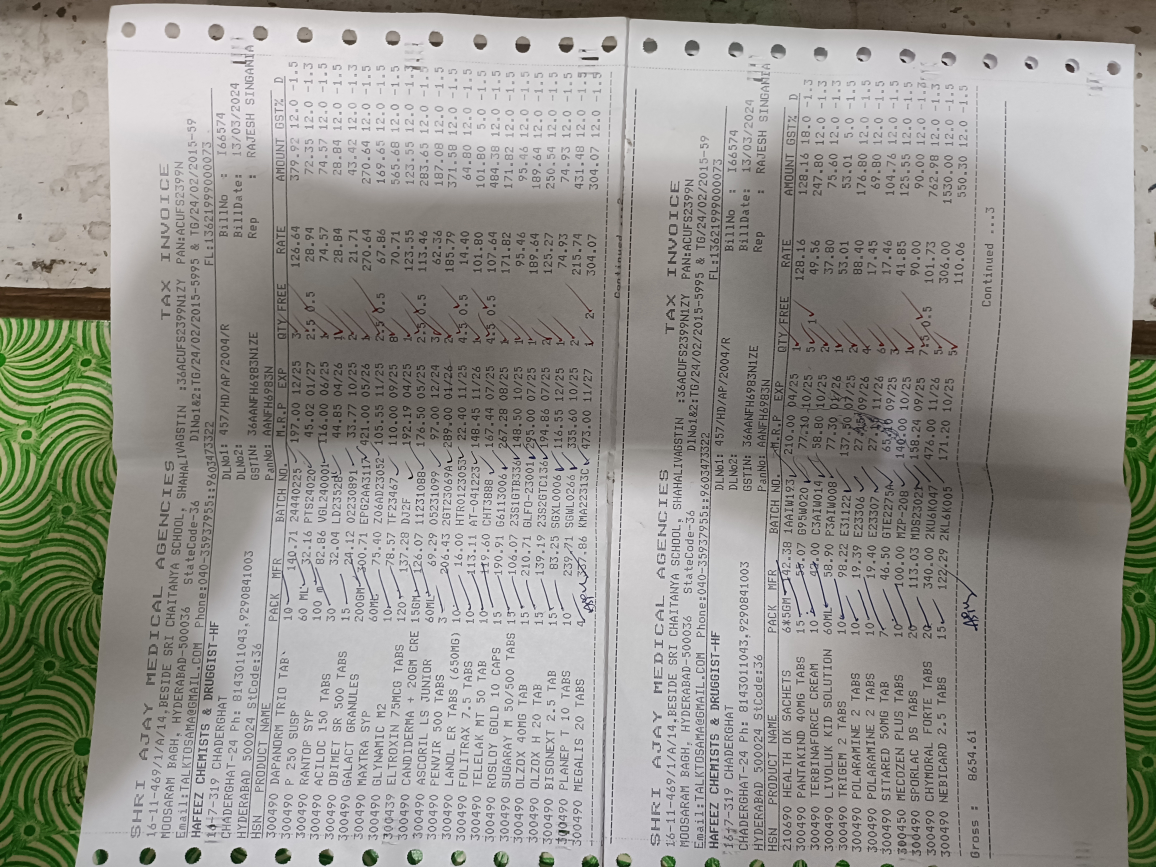 SHRI AJAY MEDICAL AGENCIES TAX INVOICE
16-11-469/1/A/14,BESIDE SRI CHAITANYA SCHOOL, SHAHALIVAGSTIN :36ACUFS2399N1ZY PAN:ACUFS2399N
MOOSARAM BAGH, HYDERABAD-500036 StateCode-36 DlNo1&2:TG/24/02/2015-5995 & TG/24/02/2015-59
Email:TALKTOSAMA@GMAIL.COM Phone:040-35937955::9603473322 FL:13621999000073
HAFEEZ CHEMISTS & DRUGGIST-HF DLNo1: 457/HD/AP/2004/R BillNo : I66574
16-7-319 CHADERGHAT DLNo2: BillDate: 13/03/2024
CHADERGHAT-24 Ph: 8143011043,9290841003 GSTIN: 36AANFH6983N1ZE Rep : RAJESH SINGANIA
HYDERABAD 500024 StCode:36 PanNo: AANFH6983N
HSN PRODUCT NAME PACK MFR BATCH NO. M.R.P EXP QTY FREE RATE AMOUNT GST% D
300490 DAPANORM TRIO TAB 10 140.71 24440225 197.00 12/25 3 126.64 379.92 12.0 -1.5
300490 P 250 SUSP 60 ML 32.16 PTS24020 45.02 01/27 2.5 0.5 28.94 72.35 12.0 -1.3
300490 RANTOP SYP 100 m 82.86 VGL240001 116.00 06/25 1 74.57 74.57 12.0 -1.5
300490 ACILOC 150 TABS 30 32.04 LD23528 44.85 04/26 1 28.84 28.84 12.0 -1.3
300490 OBIMET SR 500 TABS 15 24.12 OZ230891 33.77 10/25 2 21.71 43.42 12.0 -1.5
300490 GALACT GRANULES 200GM 300.71 EPG2AA3117 421.00 05/26 1 270.64 270.64 12.0 -1.5
300490 MAXTRA SYP 60ML 75.40 ZO6AD23052 105.55 11/25 2.5 0.5 67.86 169.65 12.0 -1.5
300490 GLYNAMIC M2 10 78.57 TF23467 110.00 09/25 8 70.71 565.68 12.0 -1.5
300439 ELTROXIN 75MCG TABS 120 137.28 DJ127 192.19 04/25 1 123.55 123.55 12.0 -1.5
300490 CANDIDERMA + 20GM CRE 15GM 126.07 11231088 176.50 05/25 2.5 0.5 113.46 283.65 12.0 -1.5
300490 ASCORIL LS JUNIOR 60ML 69.29 05231098 97.00 12/25 3 62.36 187.08 12.0 -1.5
300490 PENVIR 500 TABS 3 206.43 2GT23069A 289.00 11/26 2 185.79 371.58 12.0 -1.5
300490 LANOL ER TABS (650MG) 10 16.00 HTR0123053 22.40 11/26 4.5 0.5 14.40 64.80 12.0 -1.5
300490 FOLITRAX 7.5 TABS 10 113.11 AT-041223 148.45 11/26 1 101.80 101.80 5.0 -1.5
300490 TELELAK MT 50 TAB 10 119.60 CHT3B88 167.44 07/25 4.5 0.5 107.64 484.38 12.0 -1.5
300490 ROSLOY GOLD 10 CAPS 15 190.91 GA113006 267.28 08/25 1 171.82 171.82 12.0 -1.5
300490 SUGARAY M 50/500 TABS 15 106.07 23S1GTB336 148.50 10/25 1 95.46 95.46 12.0 -1.5
300490 OLZOX 40MG TAB 15 210.71 GLFO-23001 295.00 07/25 1 189.64 189.64 12.0 -1.5
300490 OLZOX H 20 TAB 15 139.19 23S2GTC136 194.86 07/25 2 125.27 250.54 12.0 -1.5
300490 BISONEXT 2.5 TAB 15 83.25 SGXL0006 116.55 12/25 1 74.93 74.93 12.0 -1.5
300490 PLANEP T 10 TABS 10 239.71 SGWL0266 335.60 10/25 2 215.74 431.48 12.0 -1.5
300490 MEGALIS 20 TABS 4 337.86 KMA22313C 473.00 11/27 1 2 304.07 304.07 12.0 -1.5
SHRI AJAY MEDICAL AGENCIES TAX INVOICE
16-11-469/1/A/14,BESIDE SRI CHAITANYA SCHOOL, SHAHALIVAGSTIN :36ACUFS2399N1ZY PAN:ACUFS2399N
MOOSARAM BAGH, HYDERABAD-500036 StateCode-36 DlNo1&2:TG/24/02/2015-5995 & TG/24/02/2015-59
Email:TALKTOSAMA@GMAIL.COM Phone:040-35937955::9603473322 FL:13621999000073
HAFEEZ CHEMISTS & DRUGGIST-HF DLNo1: 457/HD/AP/2004/R BillNo : I66574
16-7-319 CHADERGHAT DLNo2: BillDate: 13/03/2024
CHADERGHAT-24 Ph: 8143011043,9290841003 GSTIN: 36AANFH6983N1ZE Rep : RAJESH SINGANIA
HYDERABAD 500024 StCode:36 PanNo: AANFH6983N
HSN PRODUCT NAME PACK MFR BATCH NO. M.R.P EXP QTY FREE RATE AMOUNT GST% D
210690 HEALTH OK SACHETS 6*5GM 142.38 1AAIW193 210.00 04/25 1 128.16 128.16 18.0 -1.3
300490 PANTAKIND 40MG TABS 15 55.07 G95WO20 77.10 10/25 5 1 49.56 247.80 12.0 -1.3
300490 TERBINAFORCE CREAM 10 42.00 C3AIW014 58.80 10/25 2 37.80 75.60 12.0 -1.3
300490 LIVOLUK KID SOLUTION 60ML 58.90 P3AIW008 77.30 01/26 1 53.01 53.01 5.0 -1.3
300490 TRIGEM 2 TABS 10 98.22 E31122 137.50 07/25 2 88.40 176.80 12.0 -1.5
300490 POLARAMINE 2 TABS 10 19.39 EZ3306 09/26 4 17.45 69.80 12.0 -1.5
300490 POLARAMINE 2 TABS 10 19.40 EZ3307 11/26 6 17.46 104.76 12.0 -1.5
300490 SITARED 50MG TAB 7 46.50 GTE2275A 09/25 3 41.85 125.55 12.0 -1.5
300450 MECOZEN PLUS TABS 10 100.00 MZP-208 140.00 10/25 1 90.00 90.00 12.0 -1.5
300490 SPORLAC DS TABS 20 113.03 MDS23021 158.24 09/25 7.5 0.5 101.73 762.98 12.0 -1.3
300490 CHYMORAL FORTE TABS 20 340.00 2KU6K047 476.00 11/26 5 306.00 1530.00 12.0 -1.3
300490 NEBICARD 2.5 TABS 15 122.29 2KL6K005 171.20 10/25 5 110.06 550.30 12.0 -1.5
Gross : 8654.61 Continued ...3